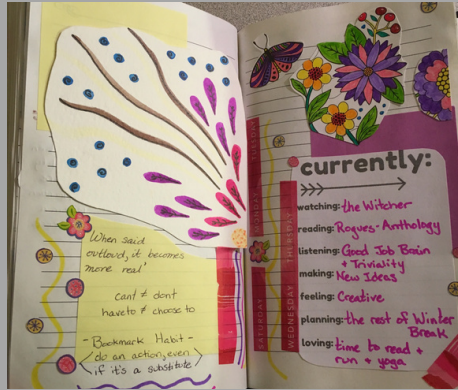 'When said
outloud, it becomes
more real'
can't ≠ don't
have to ≠ choose to
- Bookmark Habit -
do an action, even
if it's a substitute
TUESDAY
MONDAY
THURSDAY
SATURDAY
WEDNESDAY
currently:
watching: the Witcher
reading: Rogues-Anthology
listening: Good Job Brain
+ Triviality
making: New Ideas
feeling: Creative
planning: the rest of Winter
Break
loving: time to read +
run + yoga